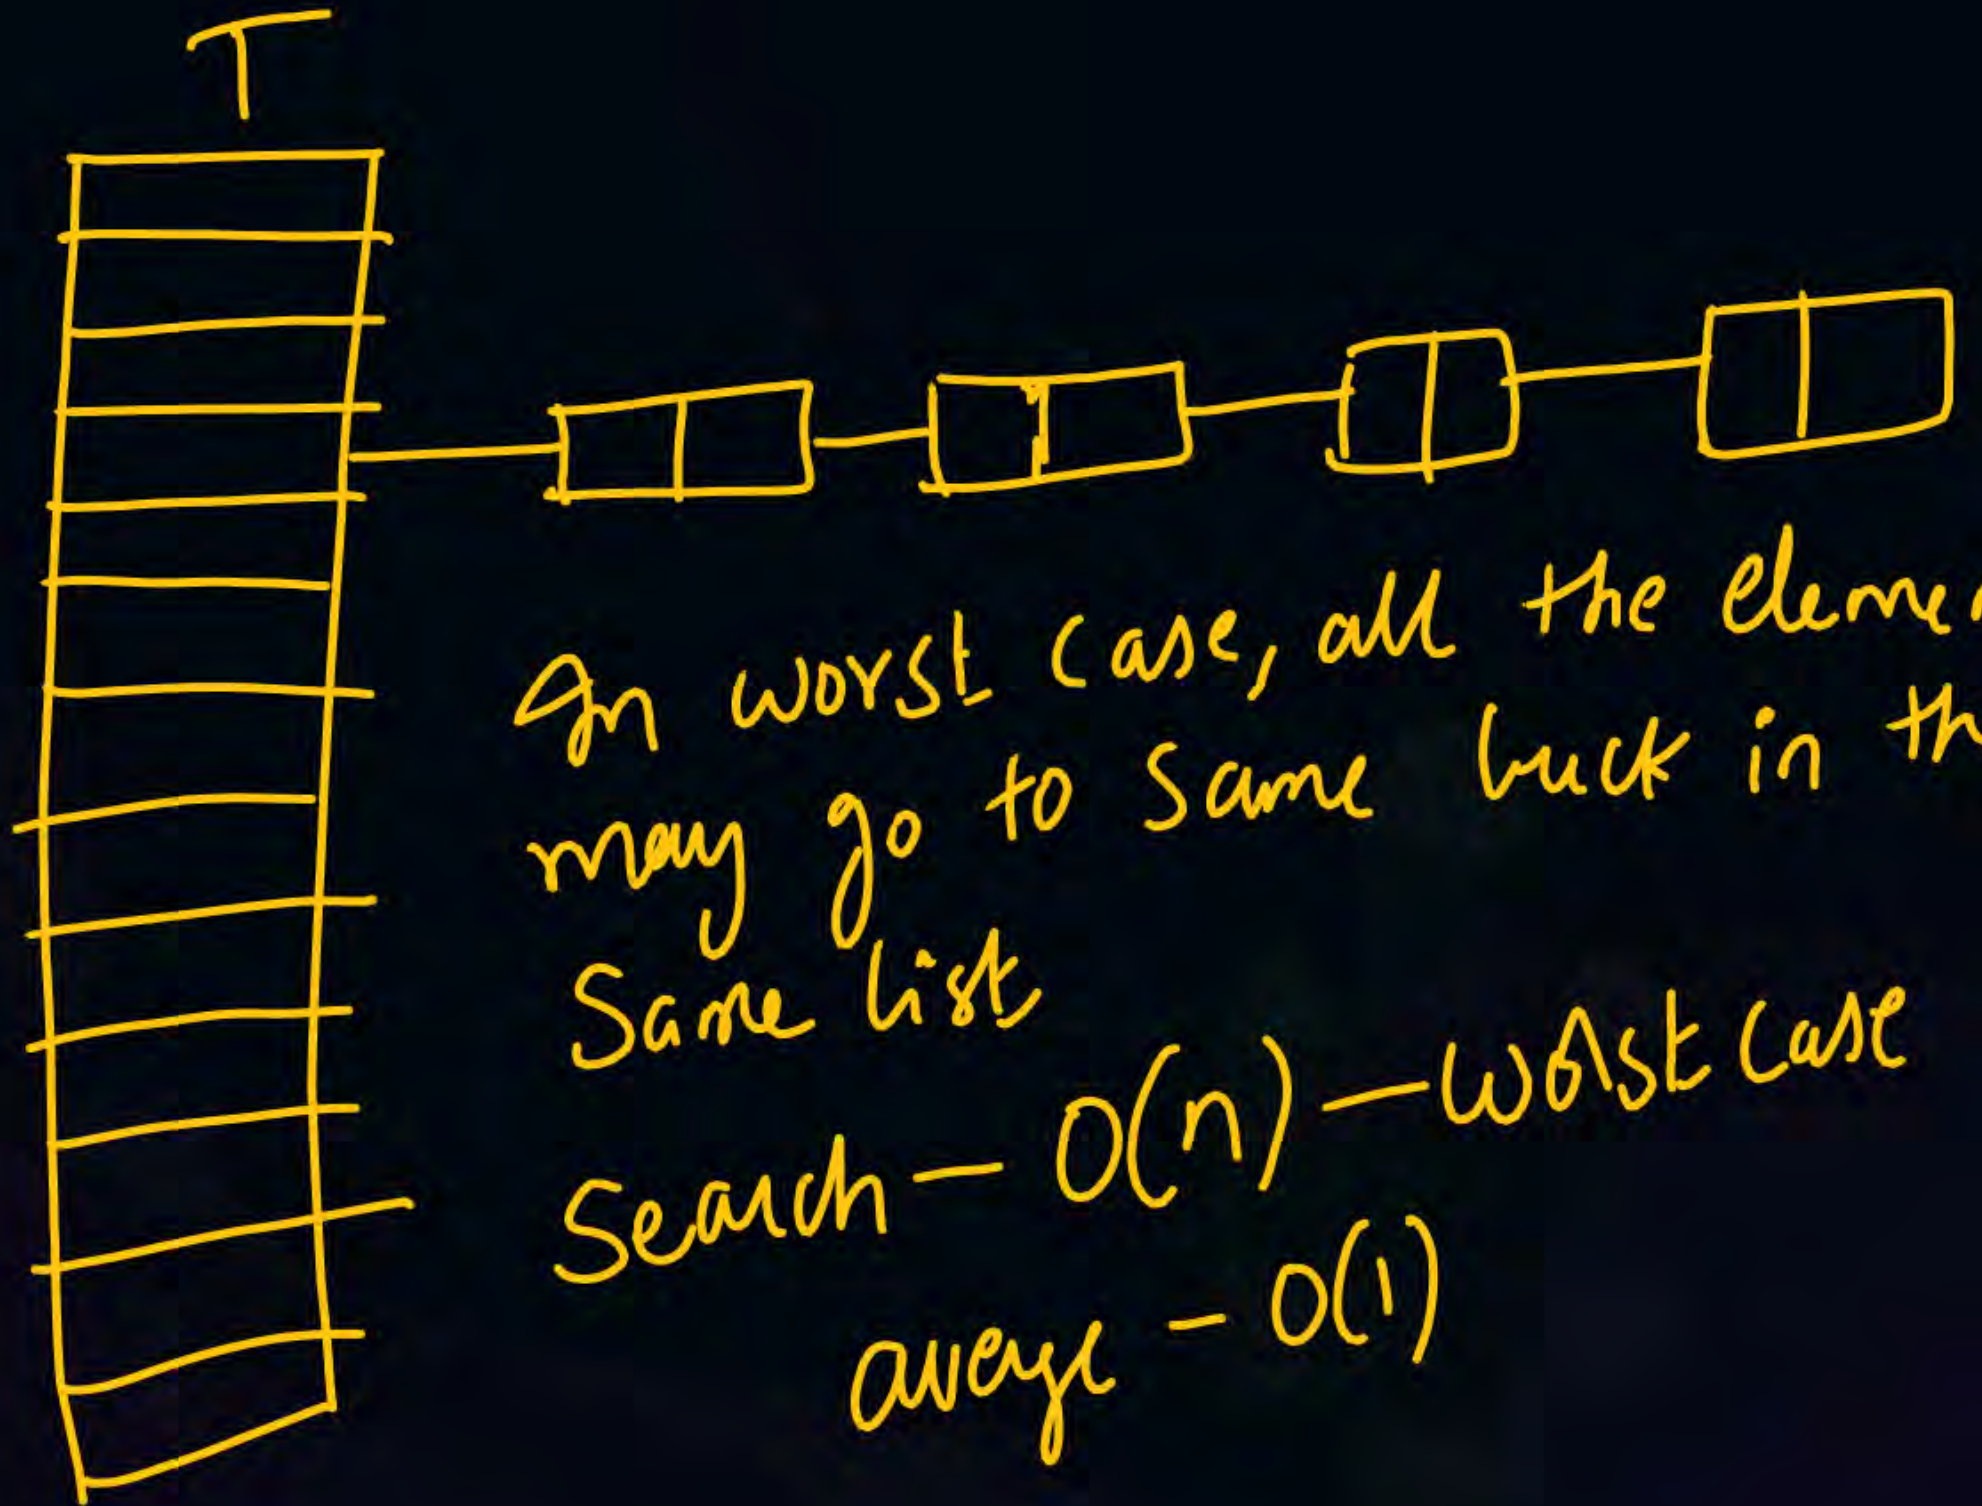 T
In worst case, all the elemen
may go to same buck in th
Same list
Search - O(n) - worst case
average - O(1)